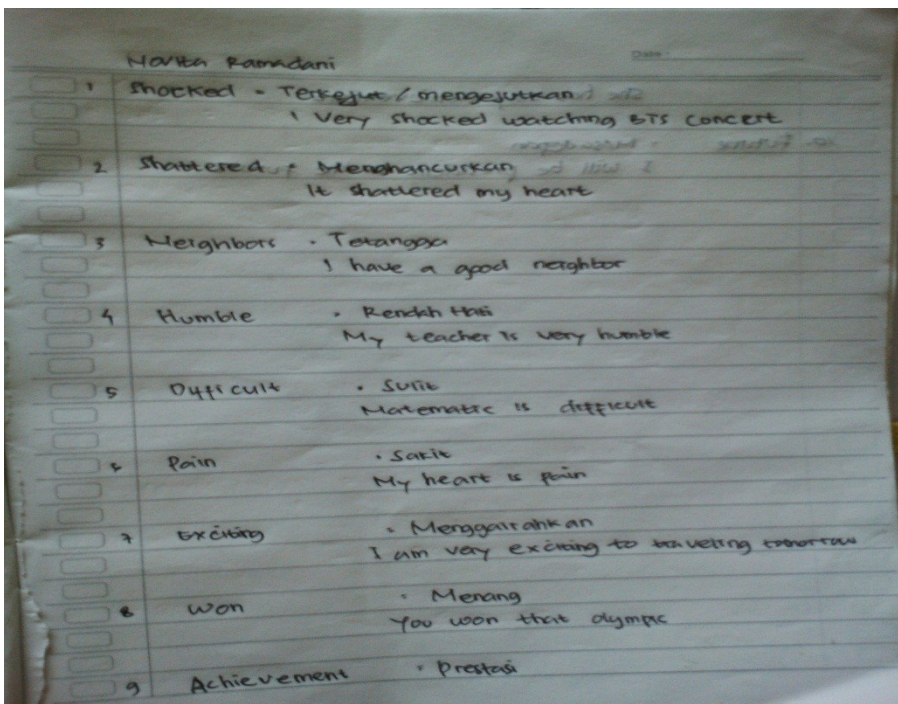 Novita Ramadani
Date:
1 Shocked - Terkejut / mengejutkan
I Very shocked watching BTS concert
2 Shattered - Menghancurkan
It shattered my heart
3 Neighbors - Tetangga
I have a good neighbor
4 Humble - Rendah Hati
My teacher is very humble
5 Difficult - Sulit
Matematic is difficult
6 Pain - Sakit
My heart is pain
7 Exciting - Menggairahkan
I am very exciting to traveling tomorrow
8 Won - Menang
You won that olympic
9 Achievement - Prestasi